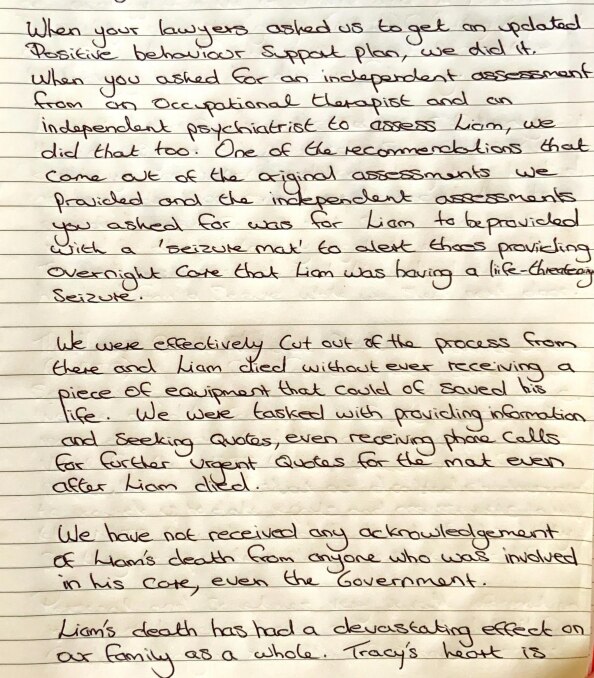 When your lawyers asked us to get an updated
Positive behaviour Support plan, we did it.
When you asked for an independent assessment
from an Occupational therapist and an
independent psychiatrist to assess Liam, we
did that too. One of the recommendations that
came out of the original assessments we
provided and the independent assessments
you asked for was for Liam to be provided
with a 'seizure mat' to alert thoes providing
overnight care that Liam was having a life-threateng
Seizure.
We were effectively cut out of the process from
there and Liam died without ever receiving a
piece of equipment that could of saved his
life. We were tasked with providing information
and seeking quotes, even receiving phone calls
for further urgent quotes for the mat even
after Liam died.
We have not received any acknowledgement
of Liam's death from anyone who was involved
in his care, even the Government.
Liam's death has had a devastating effect on
our family as a whole. Tracy's heart is